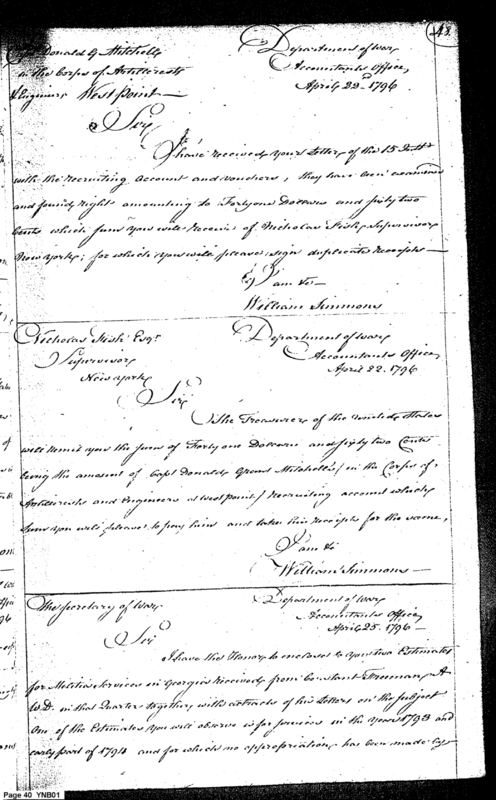 42
Donald G Mitchell
in the Corps of Artillerists
& Engineers West point
Department of War
Accountants Office
April 22nd 1796
Sir
I have received your Letter of the 15 Instt
with the recruiting account and vouchers, they have been examined
and found right amounting to Forty one Dollars and sixty two
Cents which sum you will receive of Nicholas Fish Supervisor
New York; for which you will please sign duplicate receipts
I am &c
William Simmons
Nicholas Fish Esqr
Supervisor
New York
Department of War
Accountants Office
April 22. 1796
Sir
The Treasurer of the United States
will remit you the sum of Forty one Dollars and sixty two Cents
being the amount of Capt Donald Grant Mitchells / in the Corps of
Artillerists and Engineers at West point / recruiting account which
sum you will please to pay him and take his receipts for the same,
I am &c
William Simmons
The Secretary of War
Department of War
Accountants Office
April 25. 1796
Sir
I have the Honor to enclose to you two Estimates
for Militia Services in Georgia received from Constant Freeman, A
W.D. in that Quarter together with extracts of his Letters on the subject
One of the Estimates you will observe is for services in the Years 1793 and
early part of 1794 and for which no appropriation has been made by
Page 40 YNB01